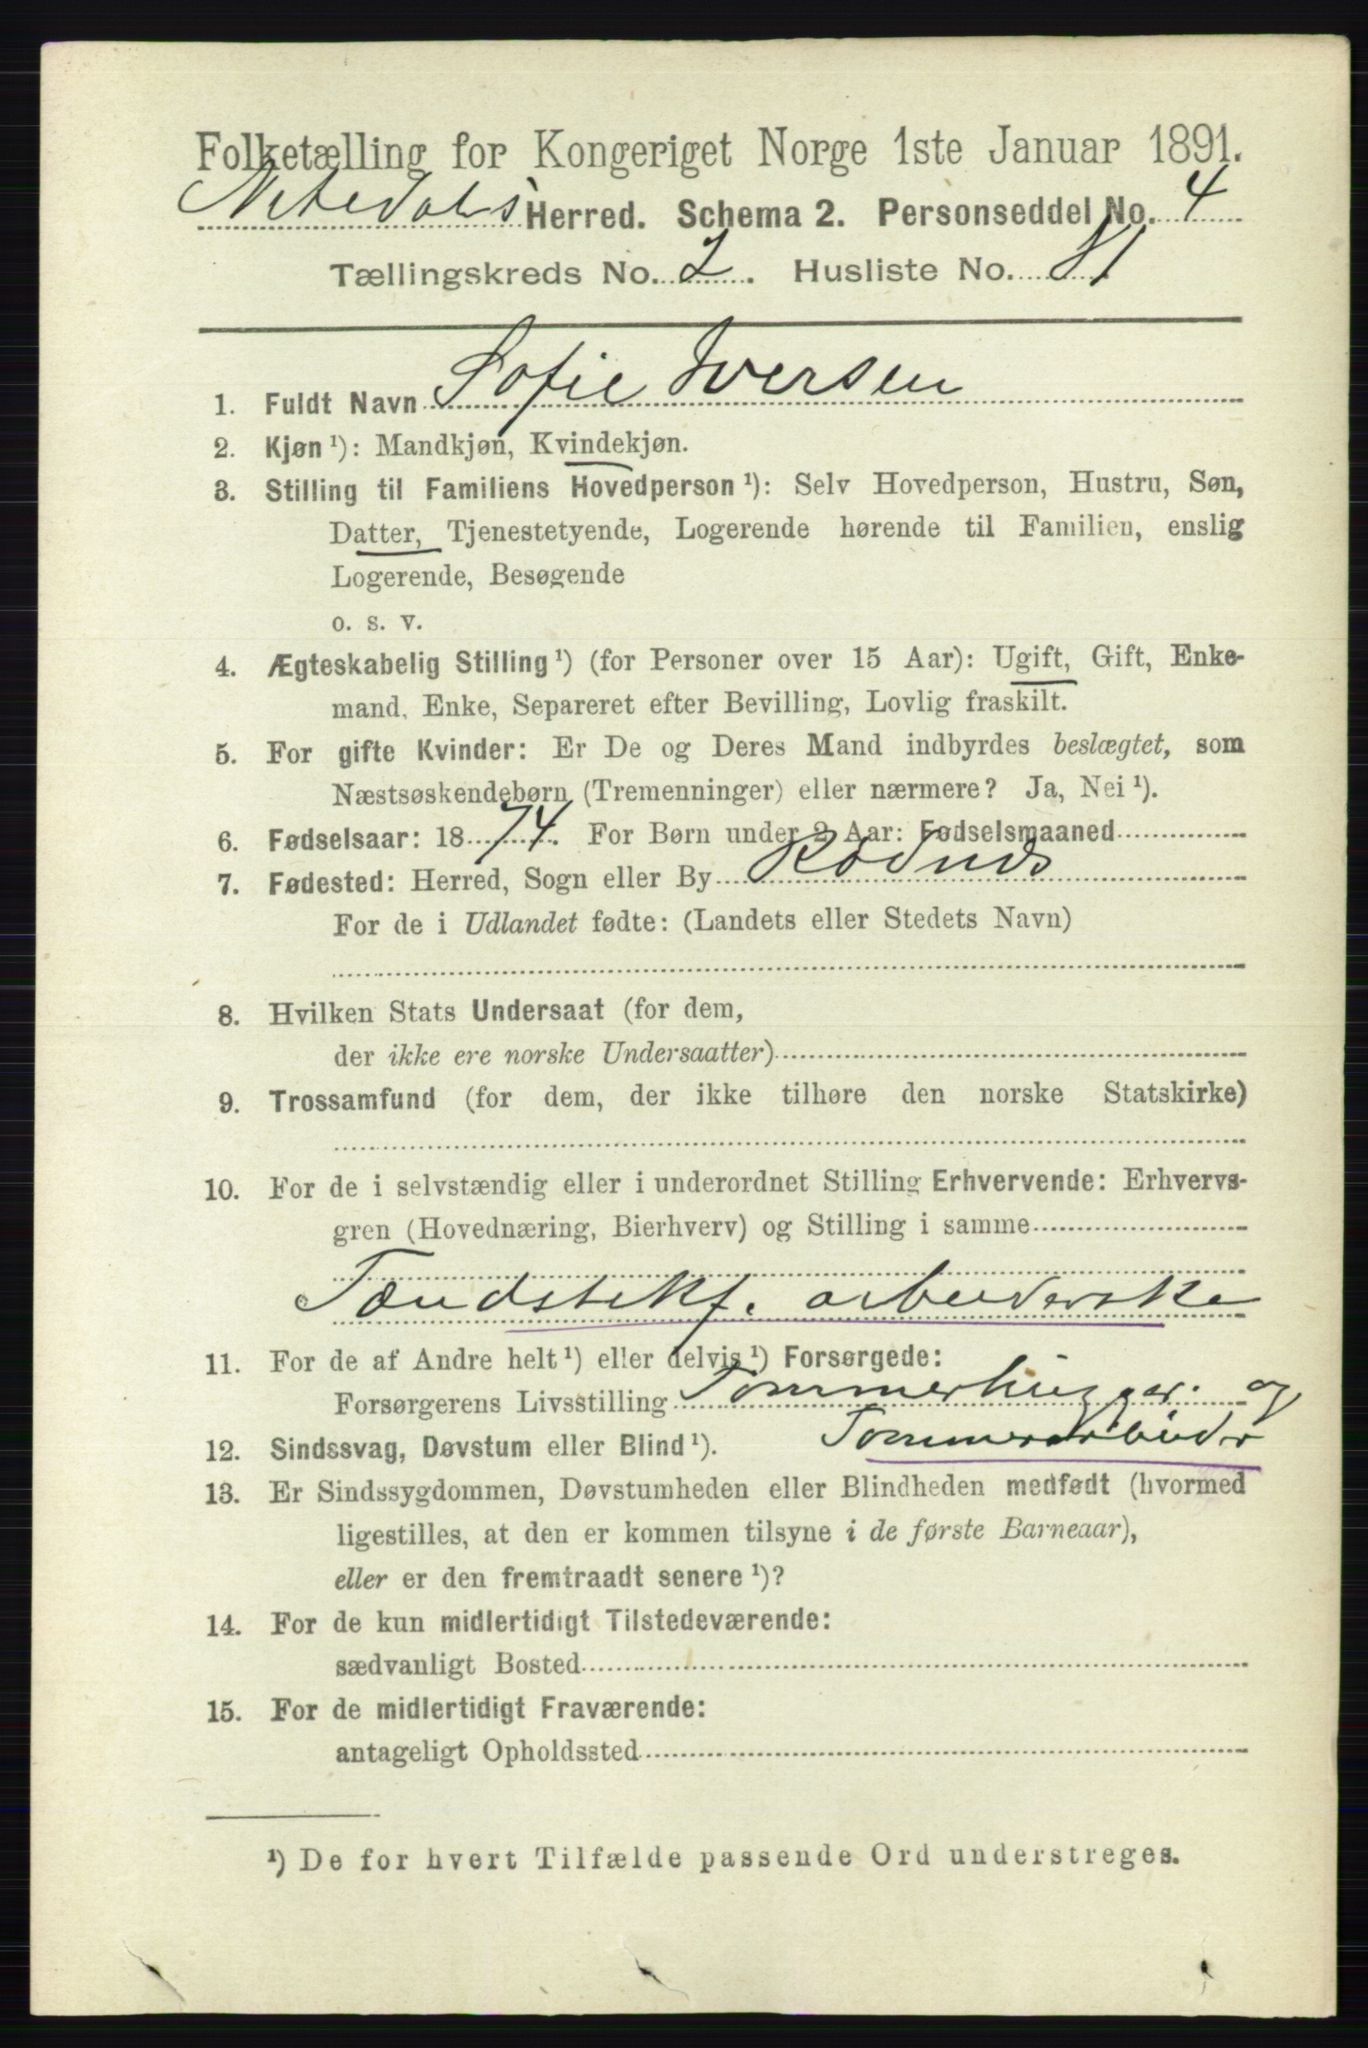 Folketælling for Kongeriget Norge 1ste Januar 1891.
Nitedals Herred. Schema 2. Personseddel No. 4
Tællingskreds No. 2. Husliste No. 81
1. Fuldt Navn Sofie Iversen
2. Kjøn ¹): Mandkjøn, Kvindekjøn.
3. Stilling til Familiens Hovedperson ¹): Selv Hovedperson, Hustru, Søn,
Datter, Tjenestetyende, Logerende hørende til Familien, enslig
Logerende, Besøgende
o. s. v.
4. Ægteskabelig Stilling ¹) (for Personer over 15 Aar): Ugift, Gift, Enke-
mand, Enke, Separeret efter Bevilling, Lovlig fraskilt.
5. For gifte Kvinder: Er De og Deres Mand indbyrdes beslægtet, som
Næstsøskendebørn (Tremenninger) eller nærmere? Ja, Nei ¹).
6. Fødselsaar: 1874. For Børn under 2 Aar: Fødselsmaaned
7. Fødested: Herred, Sogn eller By Rødnes
For de i Udlandet fødte: (Landets eller Stedets Navn)
8. Hvilken Stats Undersaat (for dem,
der ikke ere norske Undersaatter)
9. Trossamfund (for dem, der ikke tilhøre den norske Statskirke)
10. For de i selvstændig eller i underordnet Stilling Erhvervende: Erhvervs-
gren (Hovednæring, Bierhverv) og Stilling i samme
Tændstikf. arbeiderske
11. For de af Andre helt ¹) eller delvis ¹) Forsørgede:
Forsørgerens Livsstilling Tømmerhugger og
Tømmerarbeider
12. Sindssvag, Døvstum eller Blind ¹).
13. Er Sindssygdommen, Døvstumheden eller Blindheden medfødt (hvormed
ligestilles, at den er kommen tilsyne i de første Barneaar),
eller er den fremtraadt senere ¹)?
14. For de kun midlertidigt Tilstedeværende:
sædvanligt Bosted
15. For de midlertidigt Fraværende:
antageligt Opholdssted
¹) De for hvert Tilfælde passende Ord understreges.